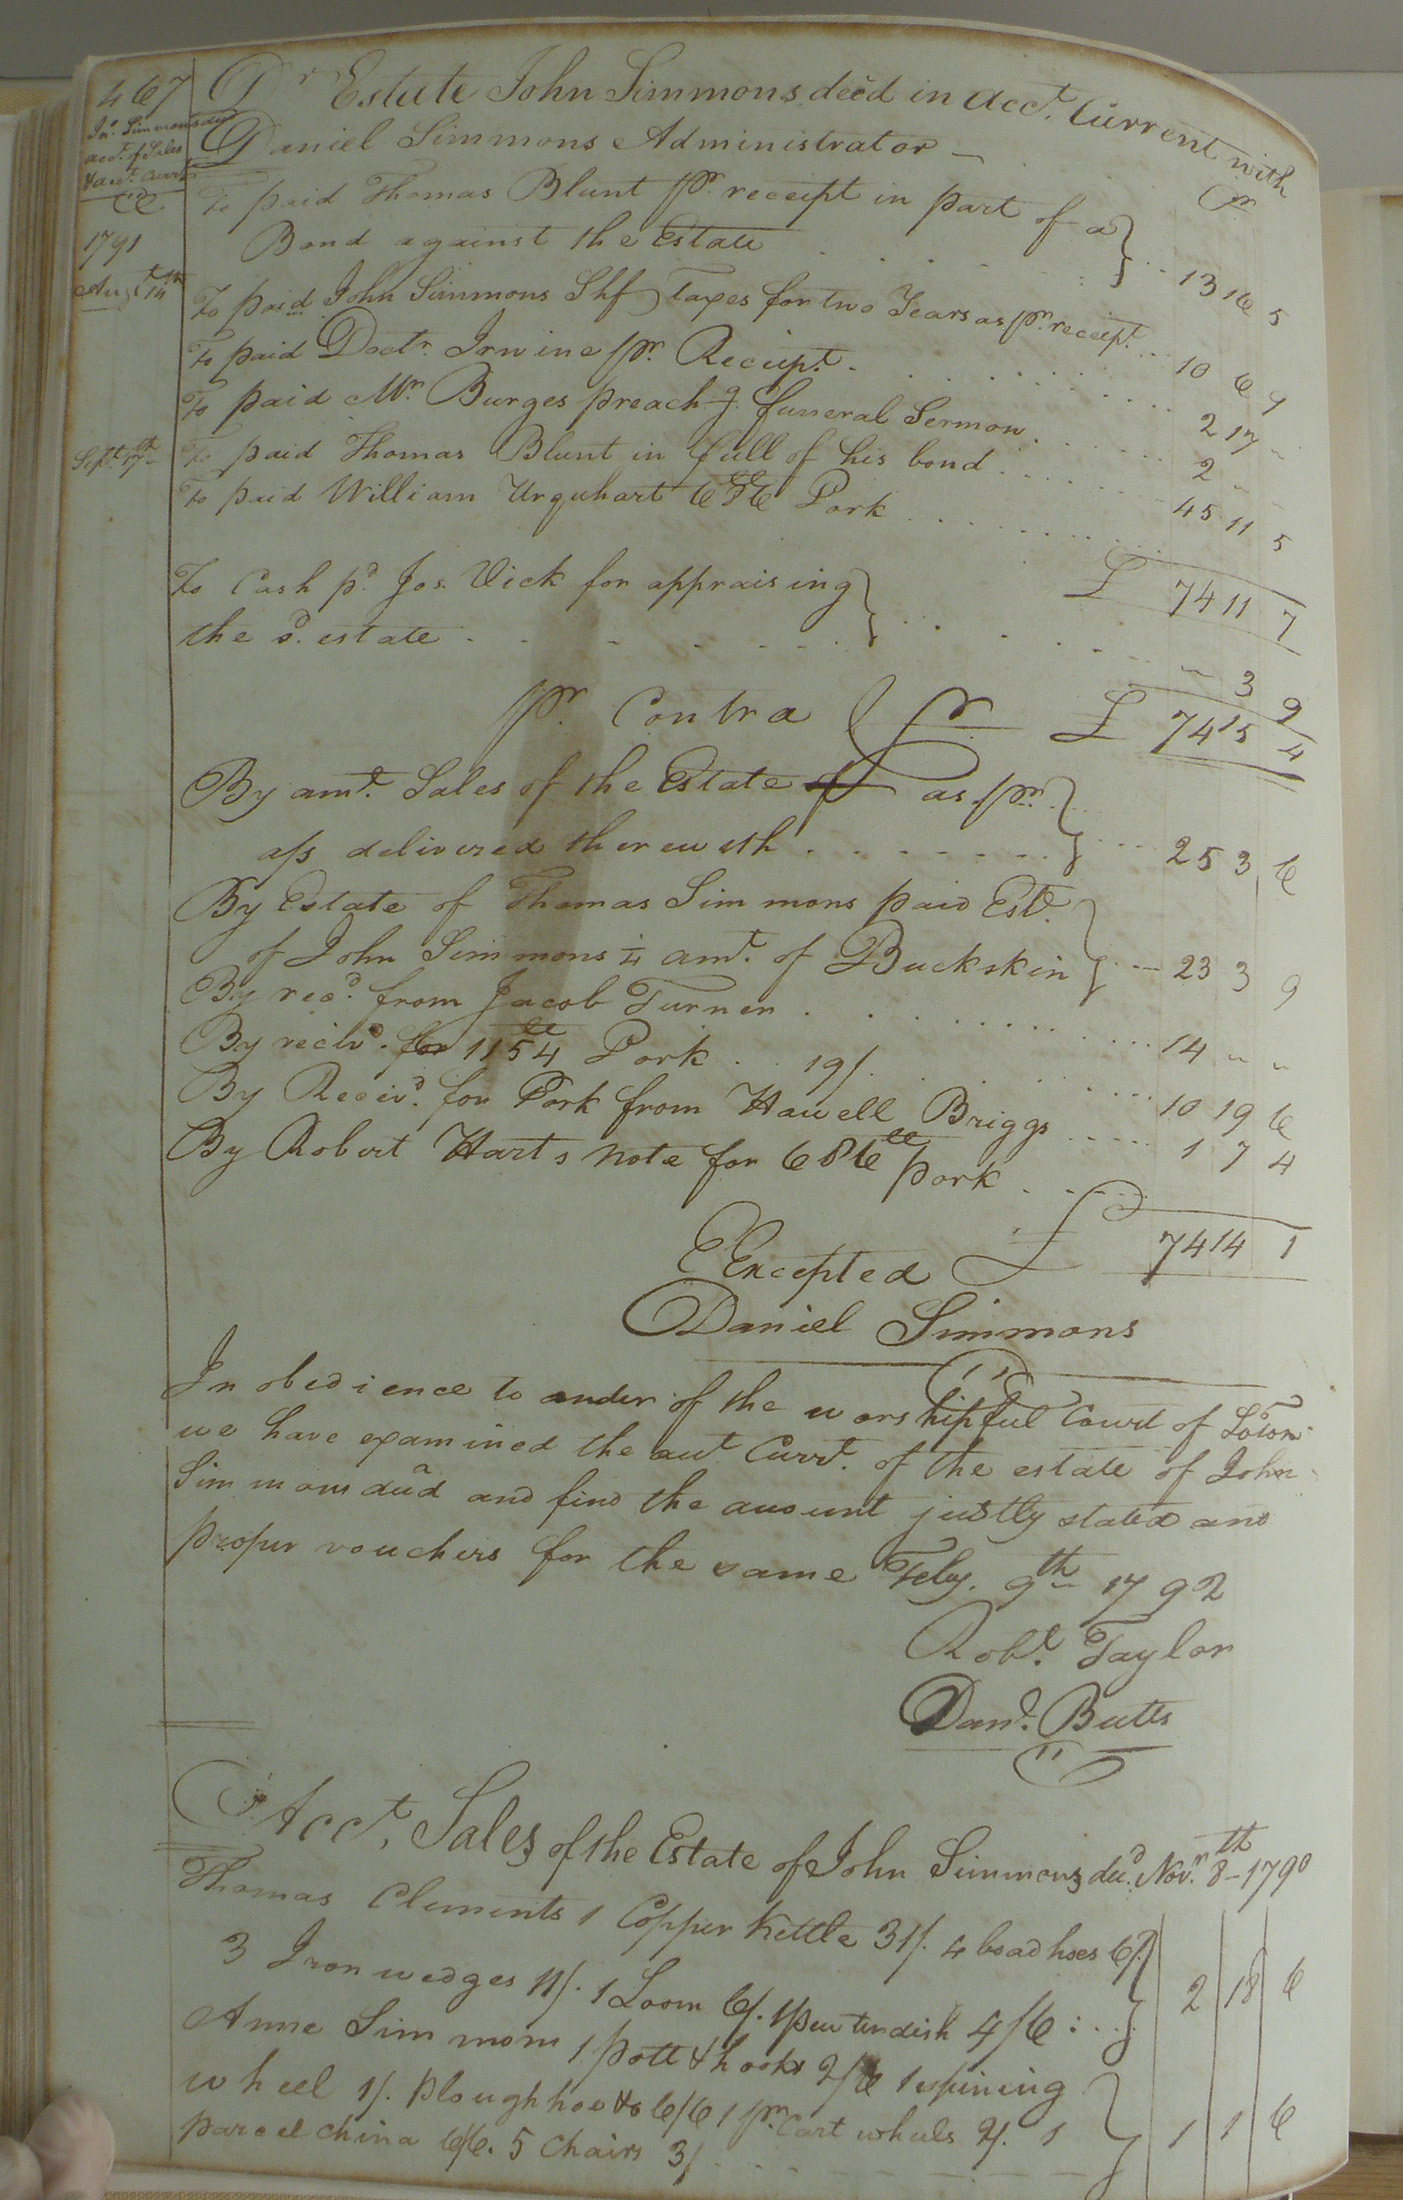 467
Jno. Simmons decd
acct. of Sales
& acct. Currt
Dr Estate John Simmons decd in Acct. Current with
Daniel Simmons Administrator — Cr
1791
Augt 14th
To paid Thomas Blunt pr. receipt in part of a
Bond against the Estate 13 16 5
To paid John Simmons Shf Taxes for two Years as pr. receipt 10 6 9
To paid Doctr. Irwine pr. Receipt 2 17 "
To paid Mr. Burges preachg. funeral Sermon 2 "
Sept. 17th To paid Thomas Blunt in full of his bond 45 11 5
To paid William Urquhart 686 Pork
£ 74 11 7
To Cash pd. Jos. Vick for appraising
the sd. estate " 3 9
£ 74 15 4
Pr. Contra Cr
By amt. Sales of the Estate as pr.
a/s delivered therewith 25 3 6
By Estate of Thomas Simmons paid Est.
of John Simmons ¼ amt. of Buckskin 23 3 9
By recd. from Jacob Turner 14 " "
By reciv'd. for 1154 Pork 19/. 10 19 6
By Receivd. for Pork from Hawell Briggs 1 7 4
By Robert Harts note for 686 pork
£ 74 14 1
E Excepted
Daniel Simmons
In obedience to order of the worshipful Court of Soton
we have examined the acct. Currt. of the estate of John
Simmons decd and find the account justly stated and
proper vouchers for the same Feby. 9th 1792
Robt. Taylor
Danl. Butts
Acct. Sales of the Estate of John Simmons decd. Novr. 8th - 1790
Thomas Clements 1 Copper Kettle 31/. 4 broad hoes 6/.
3 Iron wedges 11/. 1 Loom 6/. 1 pewter dish 4/6 2 18 6
Anne Simmons 1 pott & hooks 2/6 1 spining
wheel 1/. plough hoe &c 6/6 1 pr. Cart wheels 2/. 1
parcel china 6/6. 5 Chairs 3/ 1 1 6